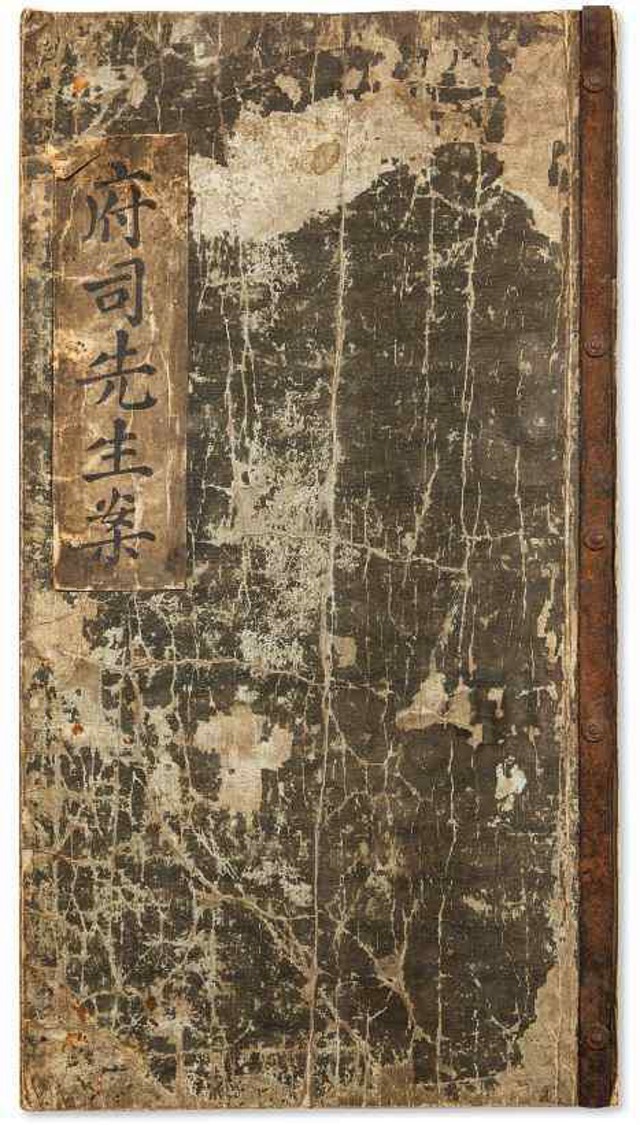 府司先生案